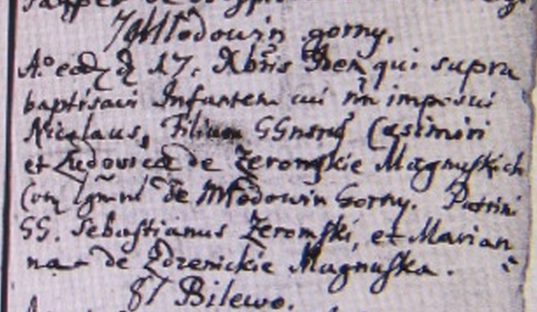 Młodowin gorny.
A° eod d 17. Xbris Idem qui supra
baptisavi Infantem cui nn imposui
Nicolaus, Filium GGnorum Casimiri
et Ludovica de Zeromskie Magnuskich
Con lgmorum de Młodowin Gorny. Patrini
GG. Sebastianus Zeromski, et Marian
na de Zdzenickie Magnuska.
Bilewo.